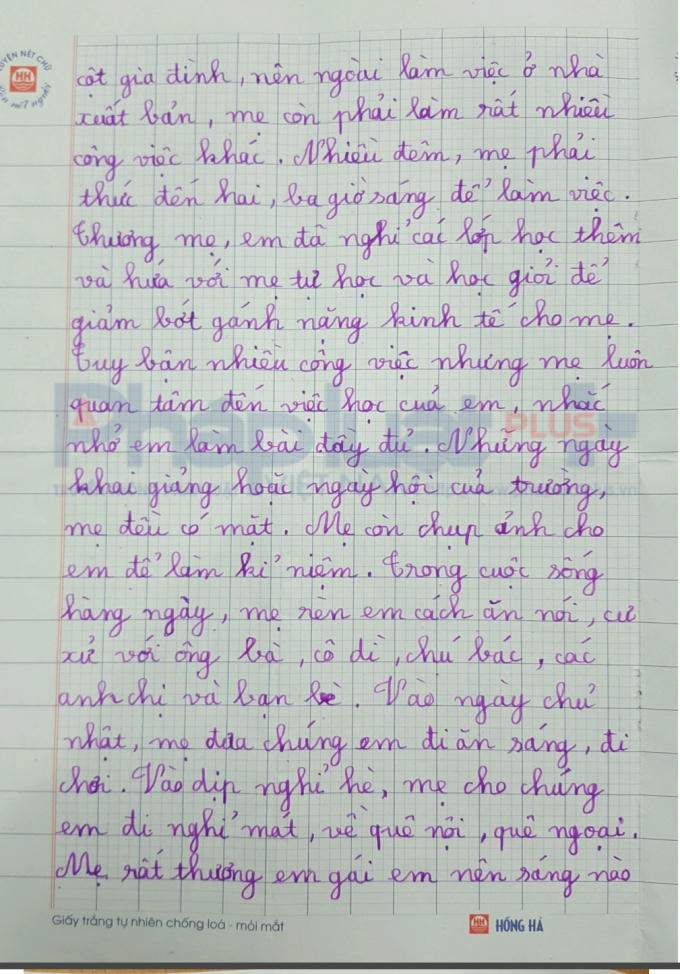 HH
cột gia đình, nên ngoài làm việc ở nhà
xuất bản, mẹ còn phải làm rất nhiều
công việc khác. Nhiều đêm, mẹ phải
thức đến hai, ba giờ sáng để làm việc.
Thương mẹ, em đã nghỉ các lớp học thêm
và hứa với mẹ tự học và học giỏi để
giảm bớt gánh nặng kinh tế cho mẹ.
Tuy bận nhiều công việc nhưng mẹ luôn
quan tâm đến việc học của em, nhắc
PLUS
nhở em làm bài đầy đủ. Những ngày
khai giảng hoặc ngày hội của trường,
mẹ đều có mặt. Mẹ còn chụp ảnh cho
em để làm kỉ niệm. Trong cuộc sống
hàng ngày, mẹ rèn em cách ăn nói, cư
xử với ông bà, cô dì, chú bác, các
anh chị và bạn bè. Vào ngày chủ
nhật, mẹ đưa chúng em đi ăn sáng, đi
chơi. Vào dịp nghỉ hè, mẹ cho chúng
em đi nghỉ mát, về quê nội, quê ngoại.
Mẹ rất thương em gái em nên sáng nào
Giấy trắng tự nhiên chống loá - mỏi mắt
HH HỒNG HÀ